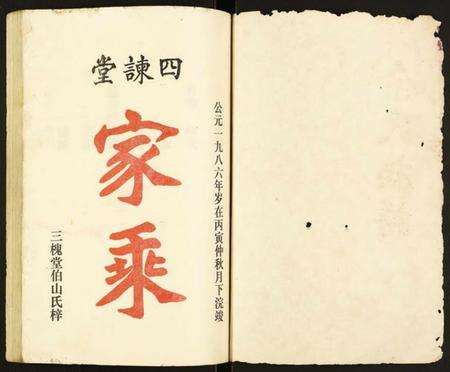 四諫堂
公元一九八六年岁在丙寅仲秋月下浣竣
家乘
三槐堂伯山氏梓